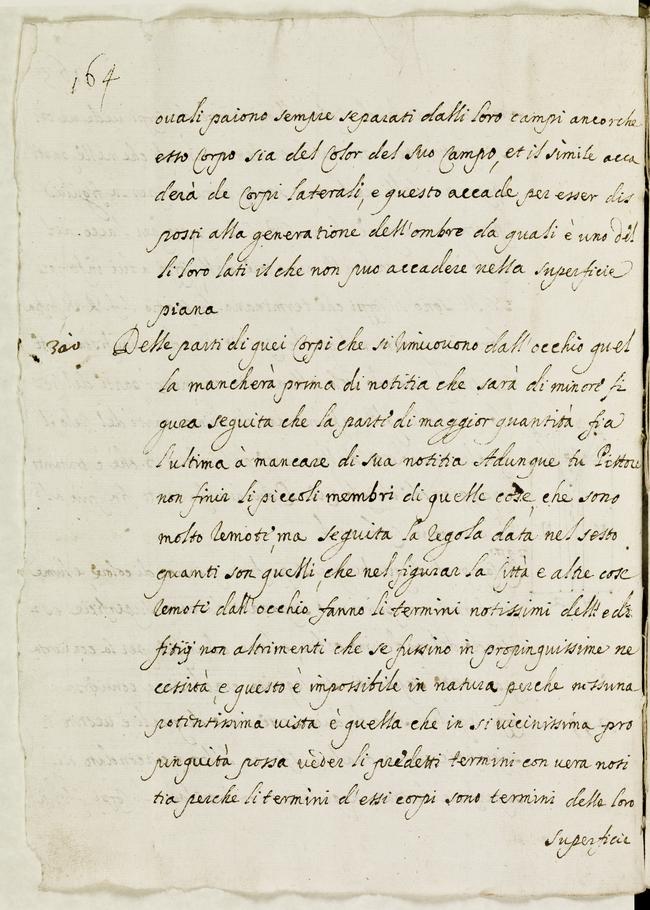 164
quali paiono sempre separati dalli loro campi ancorche
esso Corpo sia del Color del suo Campo, et il simile acca
derà de Corpi laterali, e questo accade per esser dis
posti alla generatione dell'ombre da quali è uno del
li loro lati il che non puo accadere nella superficie
piana
Delle parti di quei Corpi che si rimuovono dall'occhio quel
la mancherà prima di notitia che sarà di minore fi
gura seguita che la parte di maggior quantità fia
l'ultima à mancare di sua notitia Adunque tu Pittore
non finir li piccoli membri di quelle cose, che sono
molto remote, ma seguita la regola data nel sesto
quanti son quelli, che nel figurar la Città e altre cose
remoti dall'occhio fanno li termini notissimi delle edi
fitij non altrimenti che se fussino in propinquissime ne
cessità, e questo è impossibile in natura perche nissuna
potentissima vista è quella che in si vicinissima pro
pinquità possa veder li predetti termini con vera noti
tia perche li termini d'essi corpi sono termini delle loro
superficie